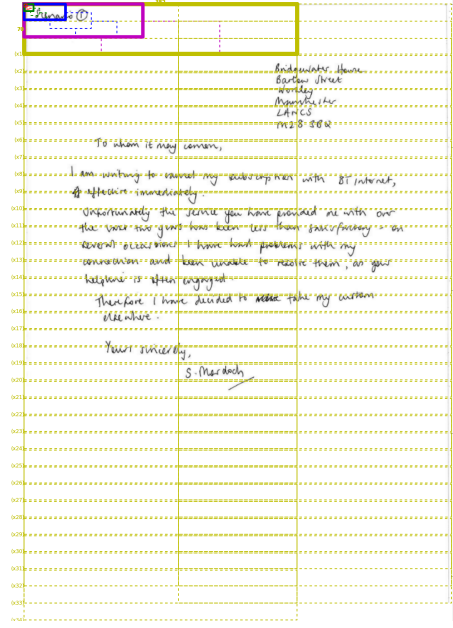 Scenario ①
Bridgewater House
Barlow Street
Worsley
Manchester
LANCS
M28 3BQ
To whom it may concern,
I am writing to cancel my subscription with BT Internet,
effective immediately.
Unfortunately the service you have provided me with over
the last two years has been less than satisfactory - on
several occasions I have had problems with my
connection and been unable to resolve them, as your
helpline is often engaged
Therefore I have decided to take my custom
elsewhere.
Yours sincerely,
S. Murdoch